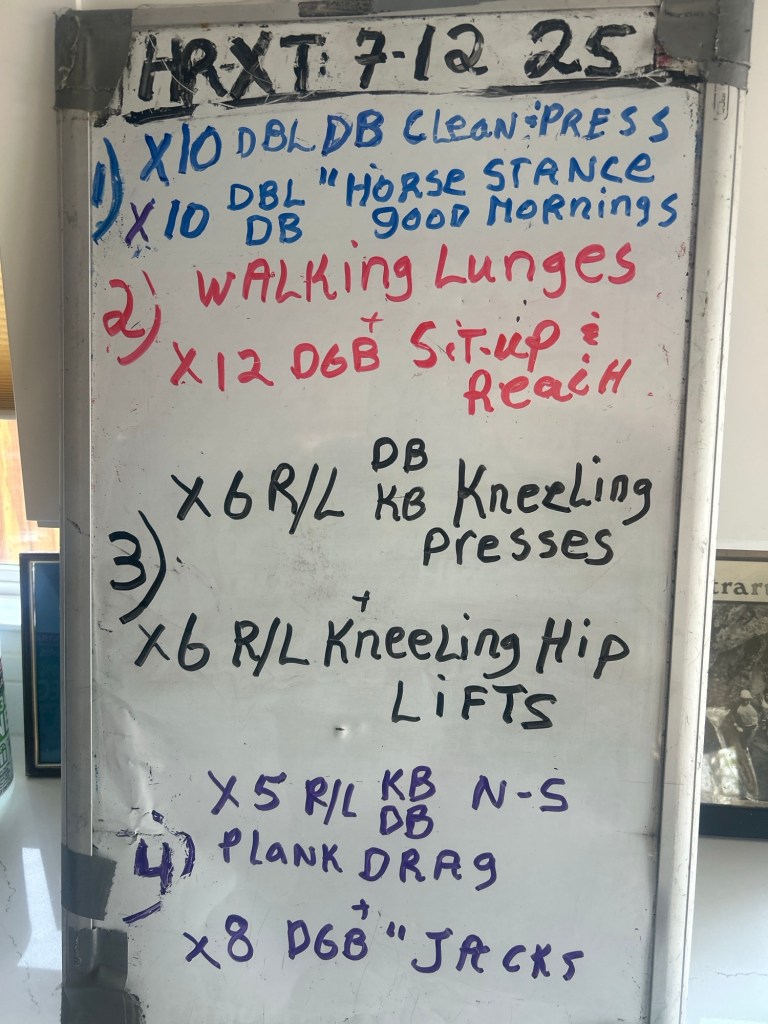 HR-XT: 7-12 25
1) X10 DBL DB CLEAN & PRESS
X10 DBL DB "HORSE STANCE
gOOD MORNings
2) WALKing Lunges
+
X12 DGB SiT-up &
ReacH
3) X6 R/L DB KB KneeLing
Presses
+
X6 R/L KneeLing Hip
LiFTS
4) X5 R/L KB DB N-S
PLANK DRAg
+
X8 DGB " JACKS
trar